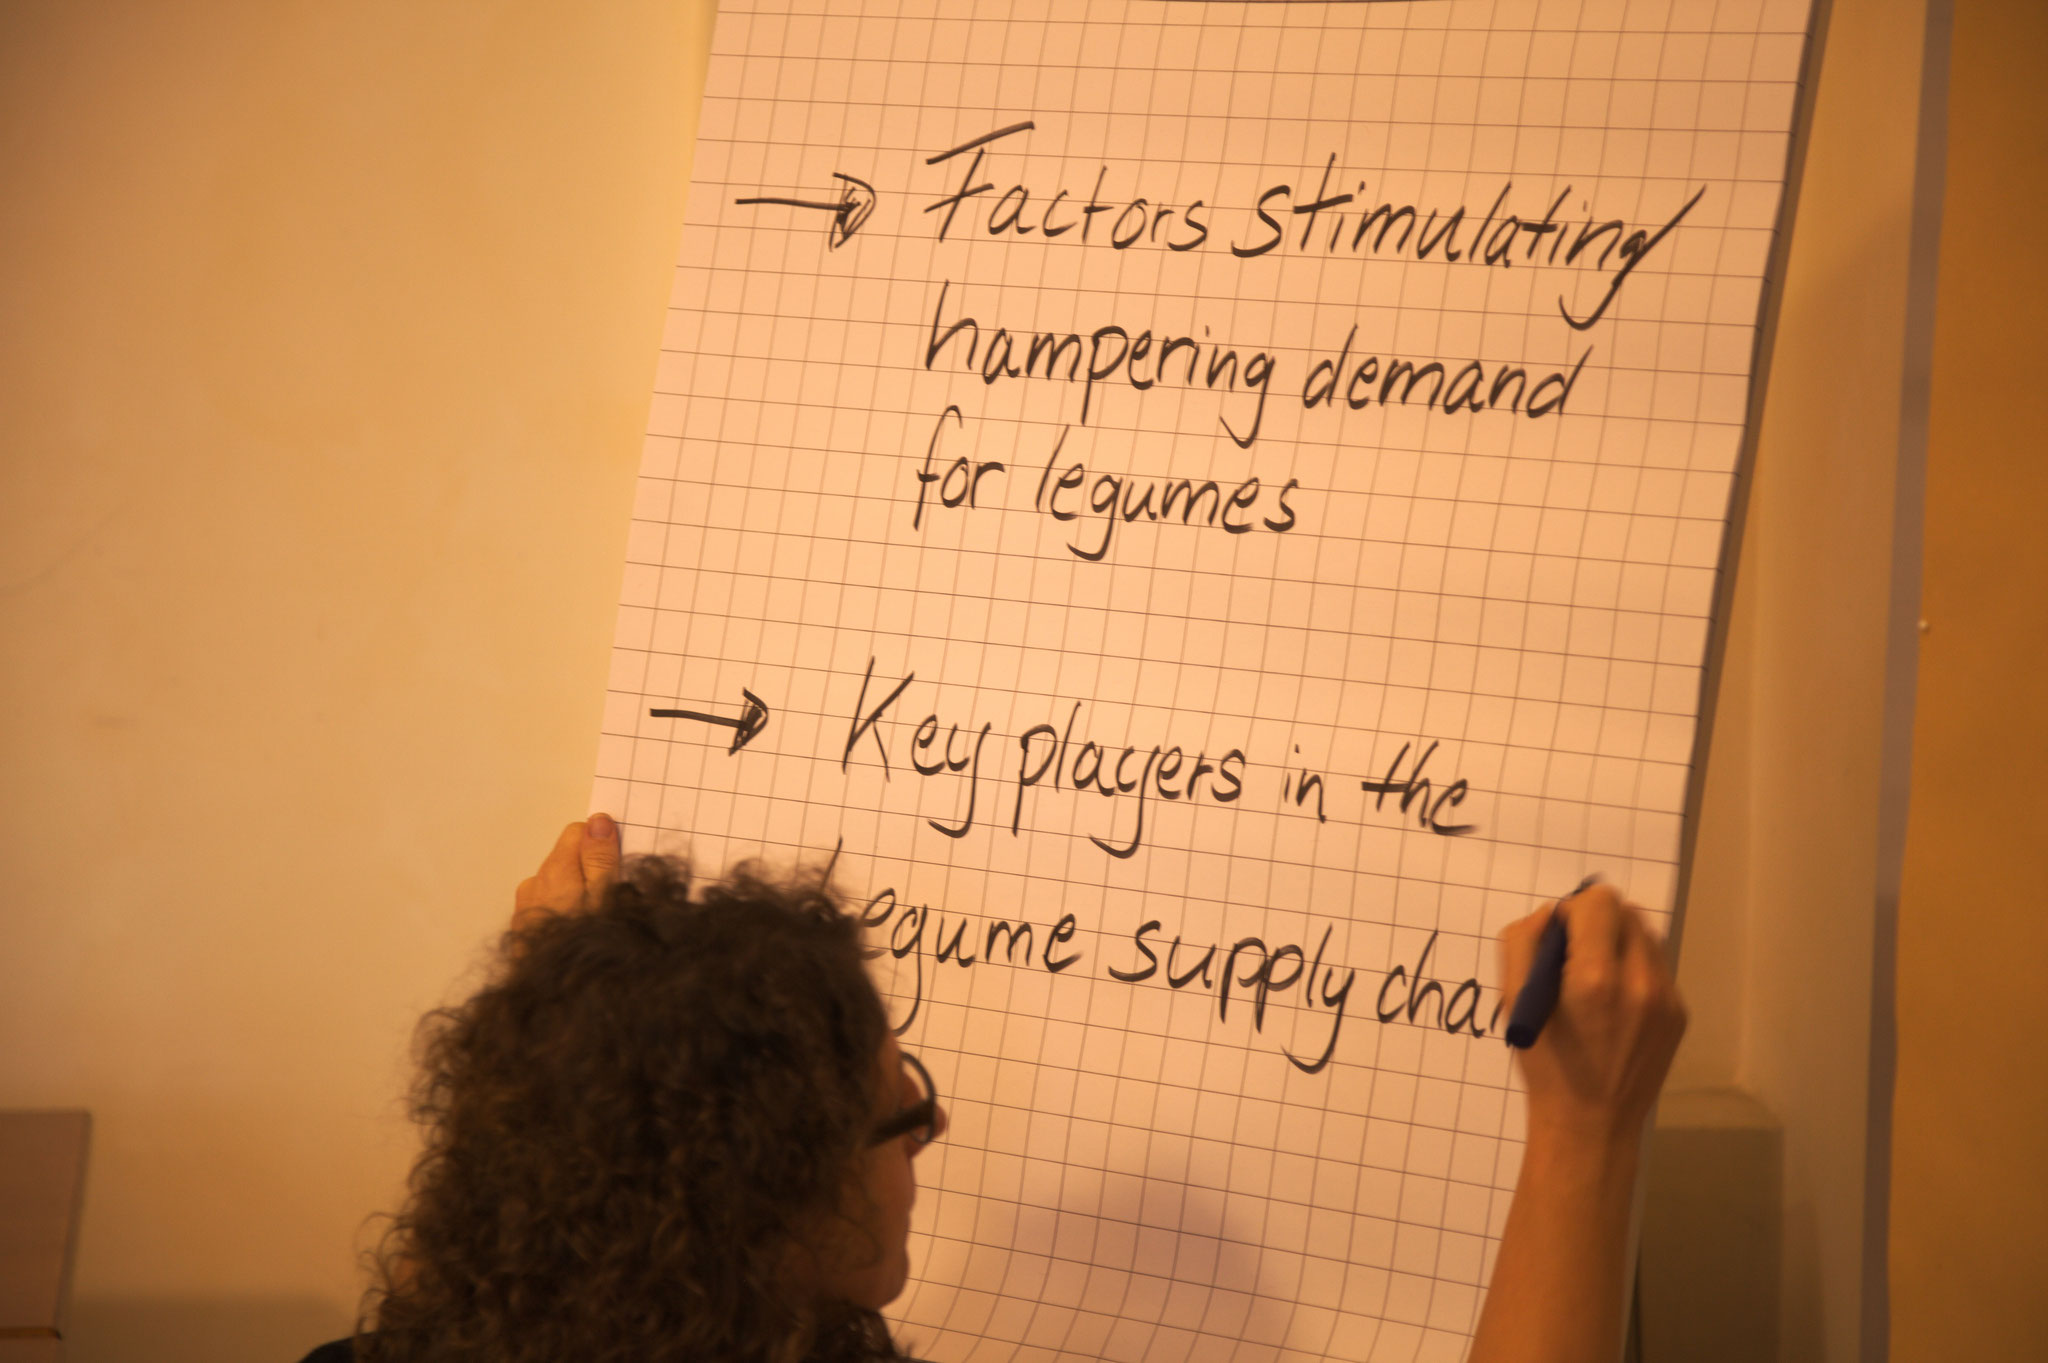 → Factors stimulating/
hampering demand
for legumes
→ Key players in the
legume supply chai